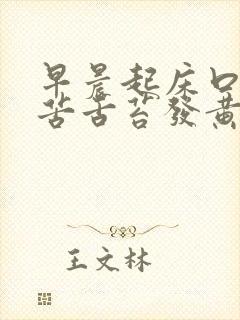 早晨起床口
苦舌苔發黃
王文林